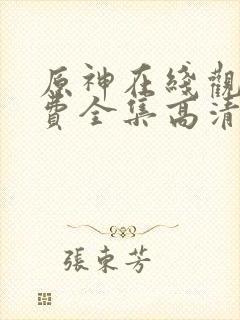 原神在綫觀
費全集高清
張東芳